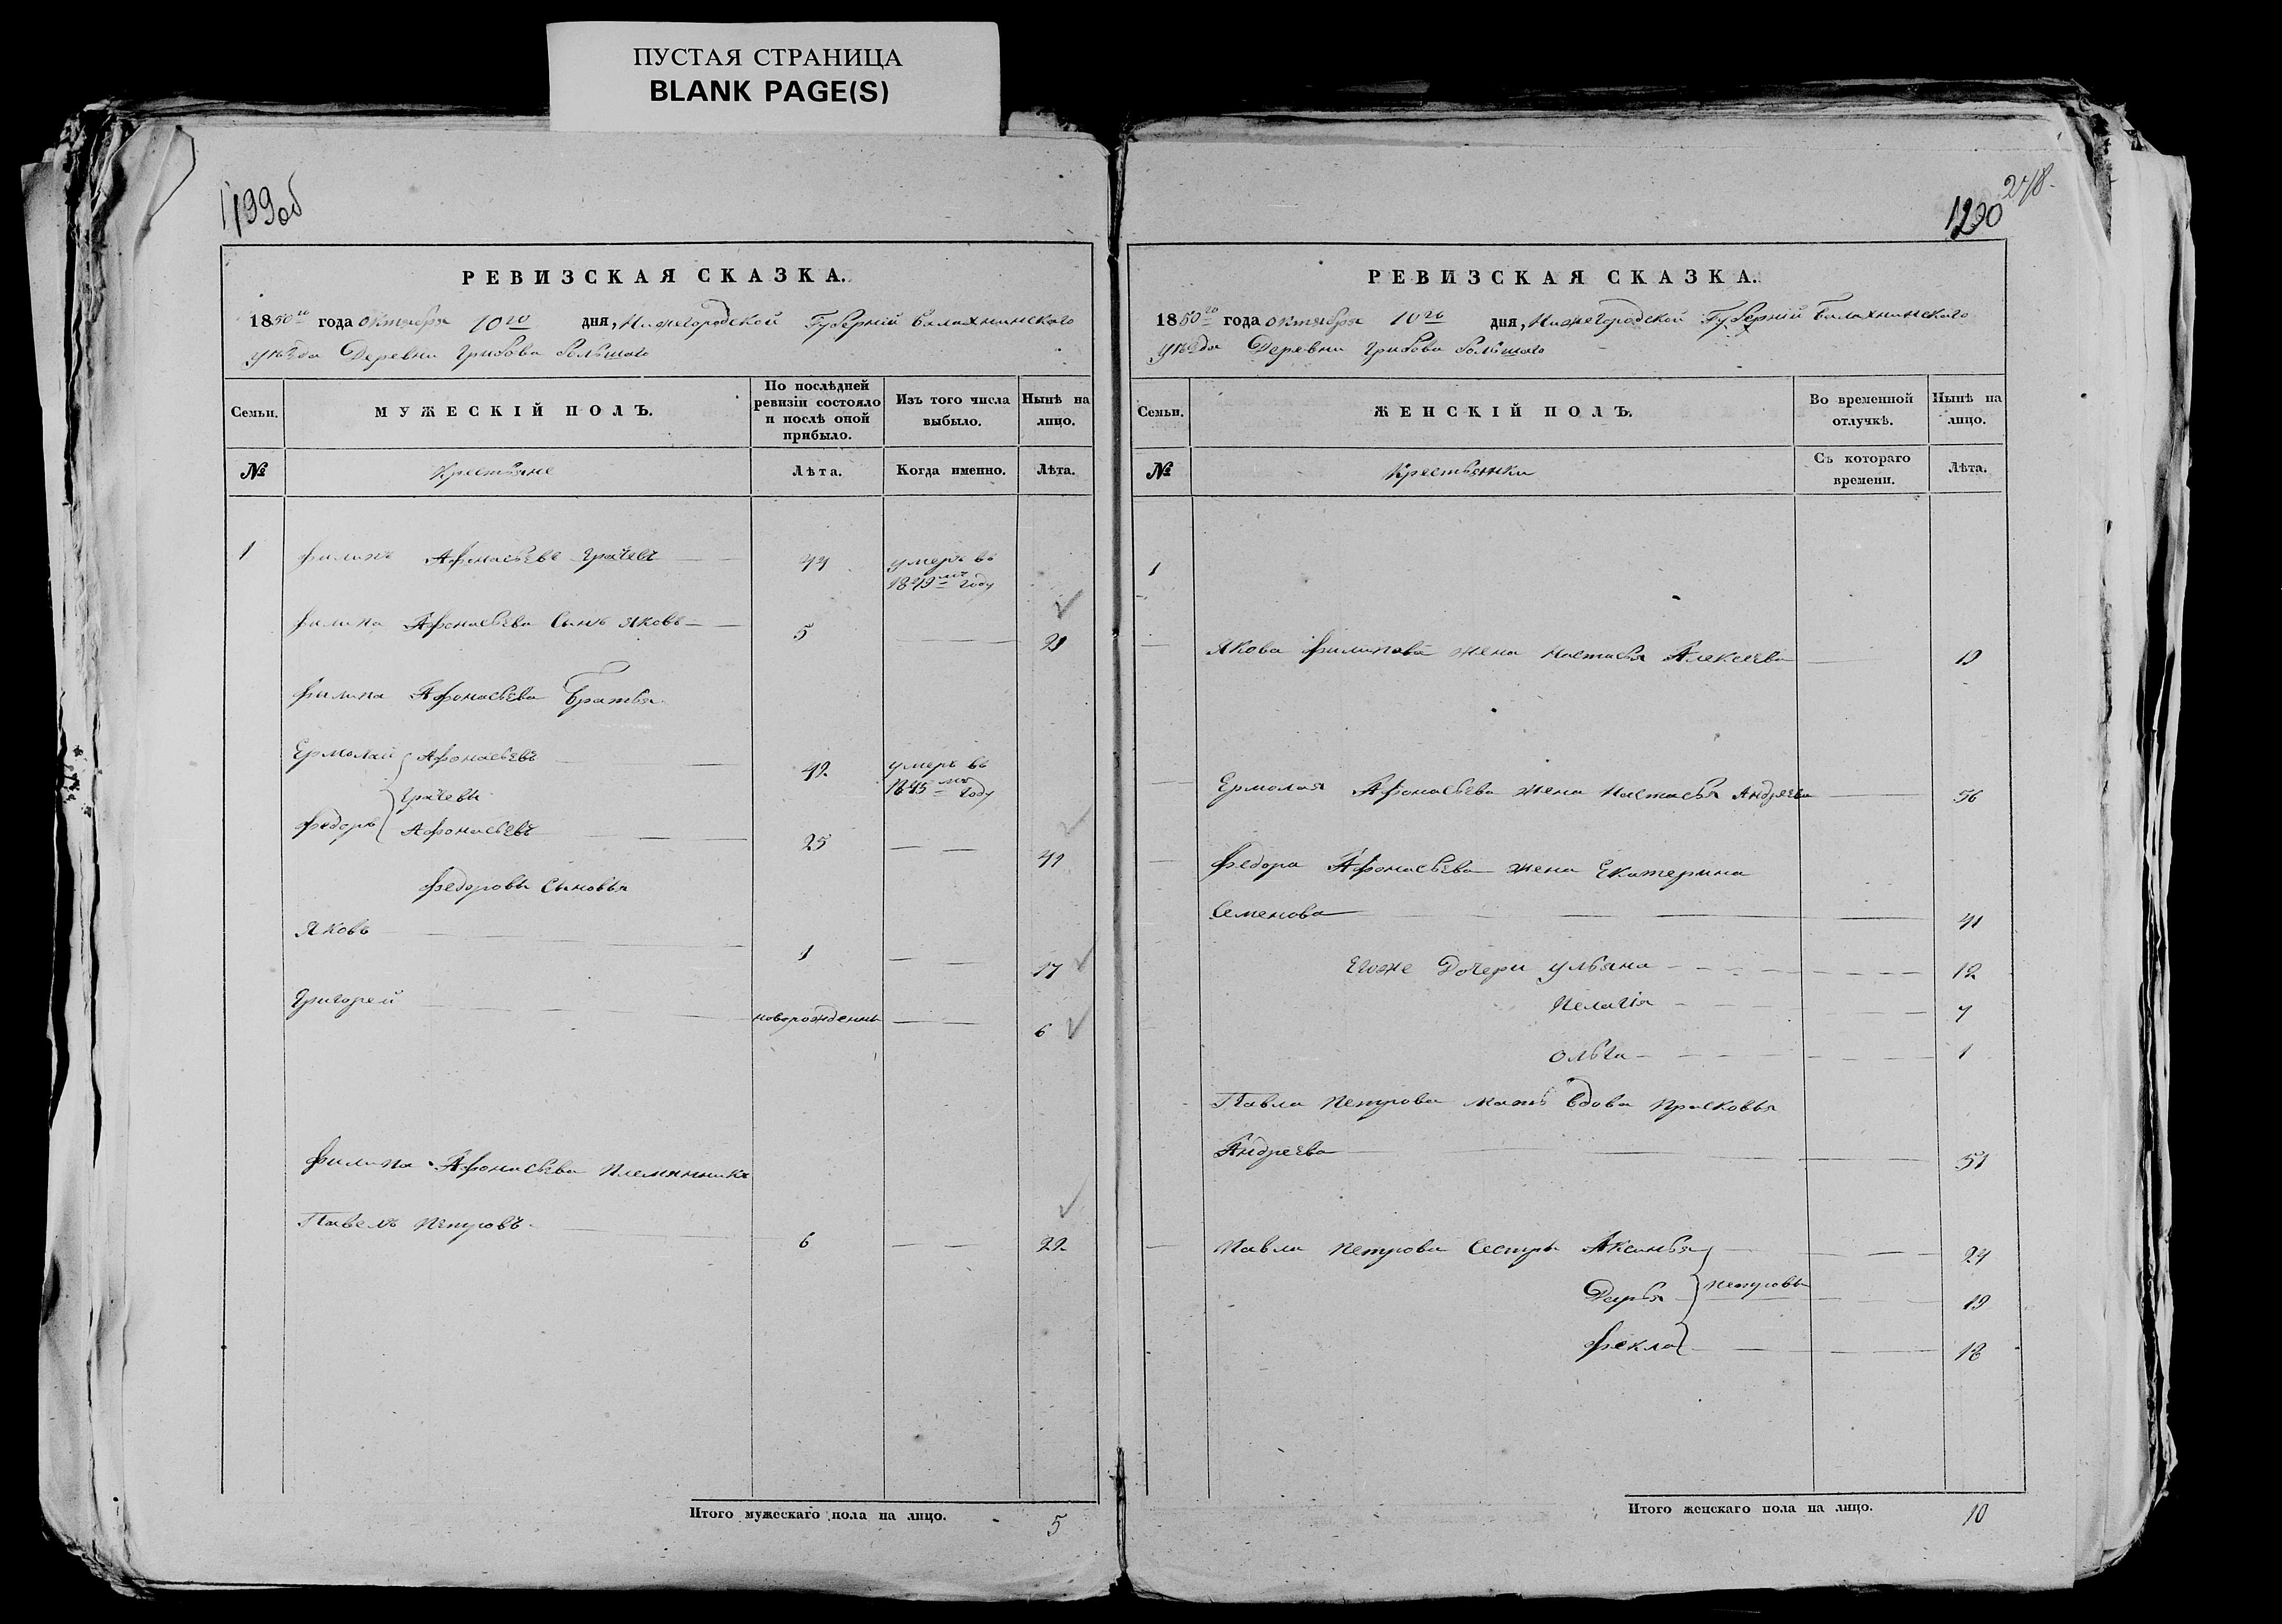 ПУСТАЯ СТРАНИЦА
BLANK PAGE(S)
1199об
РЕВИЗСКАЯ СКАЗКА.
1850го года Октября 10го дня, Нижегородской Губернiй Балахнинского
уѣзда Деревни Грибова большого
Семьи. МУЖЕСКІЙ ПОЛЪ. По послѣдней ревизіи состояло и послѣ оной прибыло. Изъ того числа выбыло. Нынѣ на лицо.
№ Крестьяне Лѣта. Когда именно. Лѣта.
1 Филипъ Афонасьевъ Грачевъ 44 умеръ въ
1849мъ году
Филипа Афонасьева Сынъ Яковъ 5 21
Филипа Афонасьева Братья
Ермолай Афонасьевъ 42 умеръ въ
Грачевы 1845мъ году
Федоръ Афонасьевъ 25 41
Федоровы Сыновья
Яковъ 1 17
Григорей новорожденны 6
Филипа Афонасьева Племянникъ
Павелъ Петровъ 6 22
Итого мужескаго пола на лицо. 5
248.
1200
РЕВИЗСКАЯ СКАЗКА.
1850го года Октября 10го дня, Нижегородской Губернiй Балахнинского
уѣзда Деревни Грибова большого
Семьи. ЖЕНСКІЙ ПОЛЪ. Во временной отлучкѣ. Нынѣ на лицо.
№ Крестьянки Съ котораго времени. Лѣта.
1
Якова Филипова жена Настасья Алексеева 19
Ермолая Афонасьева жена Настасья Андреева 56
Федора Афонасьева жена Екатерина
Семенова 41
Егоже Дочери Ульяна 12
Пелагiя 7
Ольга 1
Павла Петрова мать вдова Прасковья
Андреева 51
Павла Петрова Сестры Аксинья 24
Дарья Петровы 19
Фекла 18
Итого женскаго пола на лицо. 10